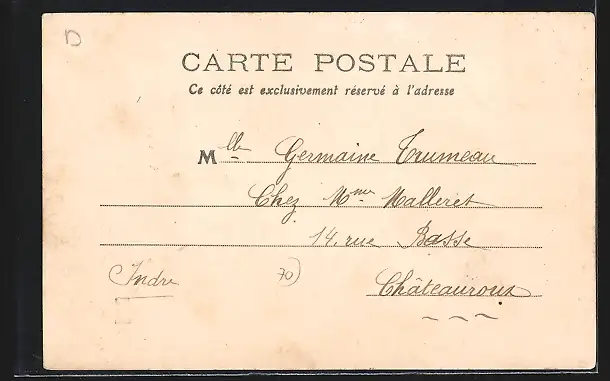 D
CARTE POSTALE
Ce côté est exclusivement réservé à l'adresse
Mlle Germaine Trumeau
Chez Mme Malleret
14, rue Basse
Indre 70) Châteauroux